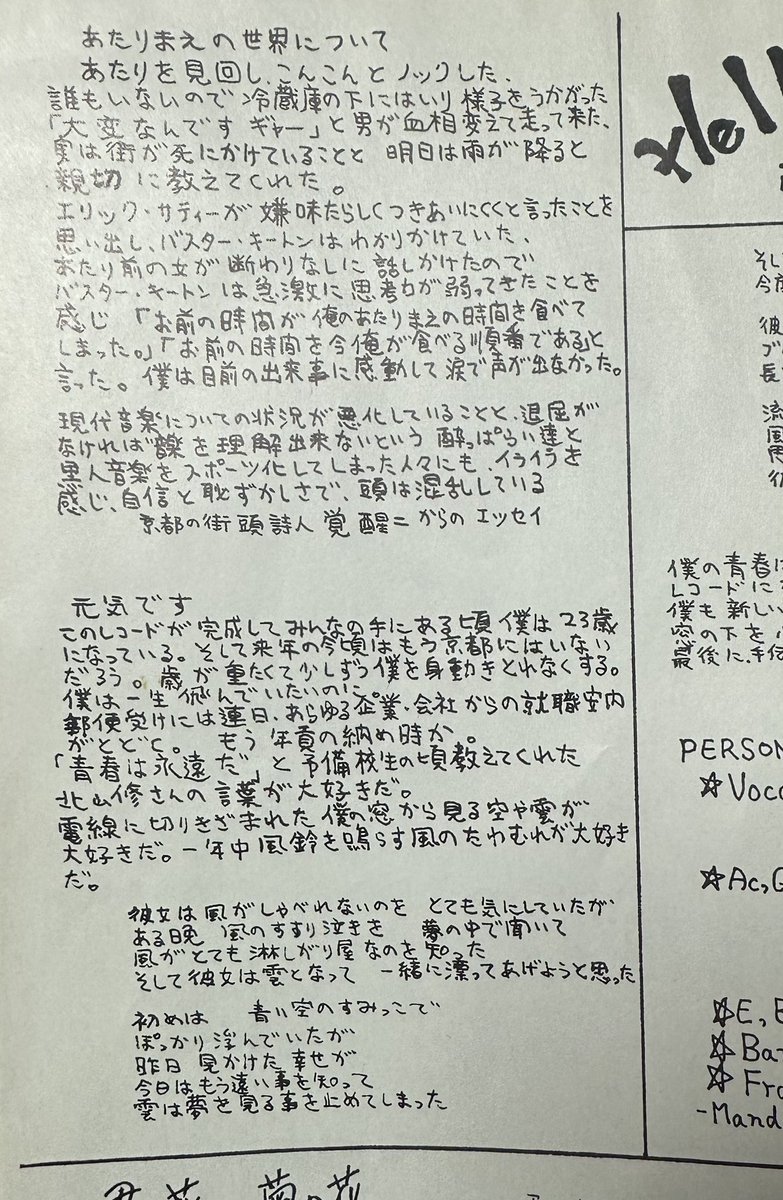 あたりまえの世界について
あたりを見回し、こんこんとノックした、
誰もいないので冷蔵庫の下にはいり様子をうかがった
「大変なんですギャー」と男が血相変えて走って来た、
実は街が死にかけていることと 明日は雨が降ると
親切に教えてくれた。
エリック・サティーが嫌味たらしくつきあいにくくと言ったことを
思い出し、バスター・キートンはわかりかけていた、
あたり前の女が断わりなしに話しかけたので
バスター・キートンは急激に思考力が弱ってきたことを
感じ「お前の時間が俺のあたりまえの時間を食べて
しまった。」「お前の時間を今俺が食べる順番である」と
言った。僕は目前の出来事に感動して涙で声が出なかった。
現代音楽についての状況が悪化していることと、退屈が
なければ音楽を理解出来ないという酔っぱらい達と
黒人音楽をスポーツ化してしまった人々にも、イライラを
感じ、自信と恥ずかしさで、頭は混乱している
京都の街頭詩人 覚醒二からのエッセイ
元気です
このレコードが完成してみんなの手にある頃僕は23歳
になっている。そして来年の今頃はもう京都にはいない
だろう。歳が重たくて少しずつ僕を身動きとれなくする。
僕は一生遊んでいたいのに
郵便受けには連日、あらゆる企業・会社からの就職案内
がとどく。 もう年貢の納め時か。
「青春は永遠だ」と予備校生の頃教えてくれた
北山修さんの言葉が大好きだ。
電線に切りきざまれた僕の窓から見る空や雲が
大好きだ。一年中風鈴を鳴らす風のたわむれが大好き
だ。
彼女は風がしゃべれないのを とても気にしていたが
ある晩 風のすすり泣きを 夢の中で聞いて
風がとても淋しがり屋なのを知った
そして彼女は雲となって 一緒に漂ってあげようと思った
初めは 青い空のすみっこで
ぽっかり浮んでいたが
昨日 見かけた幸せが
今日はもう遠い事を知って
雲は夢を見る事を止めてしまった
そし
今度
彼
ブ
長
流
風
僕の青春は
レコードに
僕も新しい
窓の下を
最後に、手伝
PERSON
☆Voco
☆Ac,G
☆E,B
☆Ba
☆Fr
-Mand